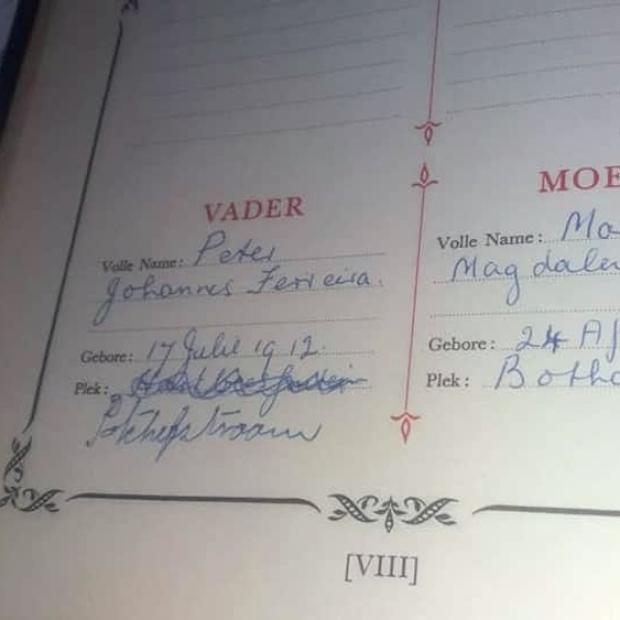 VADER
Volle Name: Peter
Johannes Ferreira.
Gebore: 17 Julie 1912.
Plek:
Potchefstroom
MOE
Volle Name: Ma
Magdalen
Gebore: 24 Ap
Plek: Botha
[VIII]